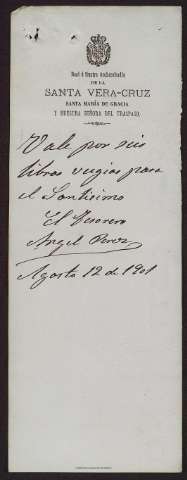 Real é Ilustre Archicofradía
DE LA
SANTA VERA-CRUZ
SANTA MARÍA DE GRACIA
Y NUESTRA SEÑORA DEL TRASPASO.
Vale por seis
libras vugias para
el Santisimo
El Tesorero
Angel Perez
Agosto 12 de 1901